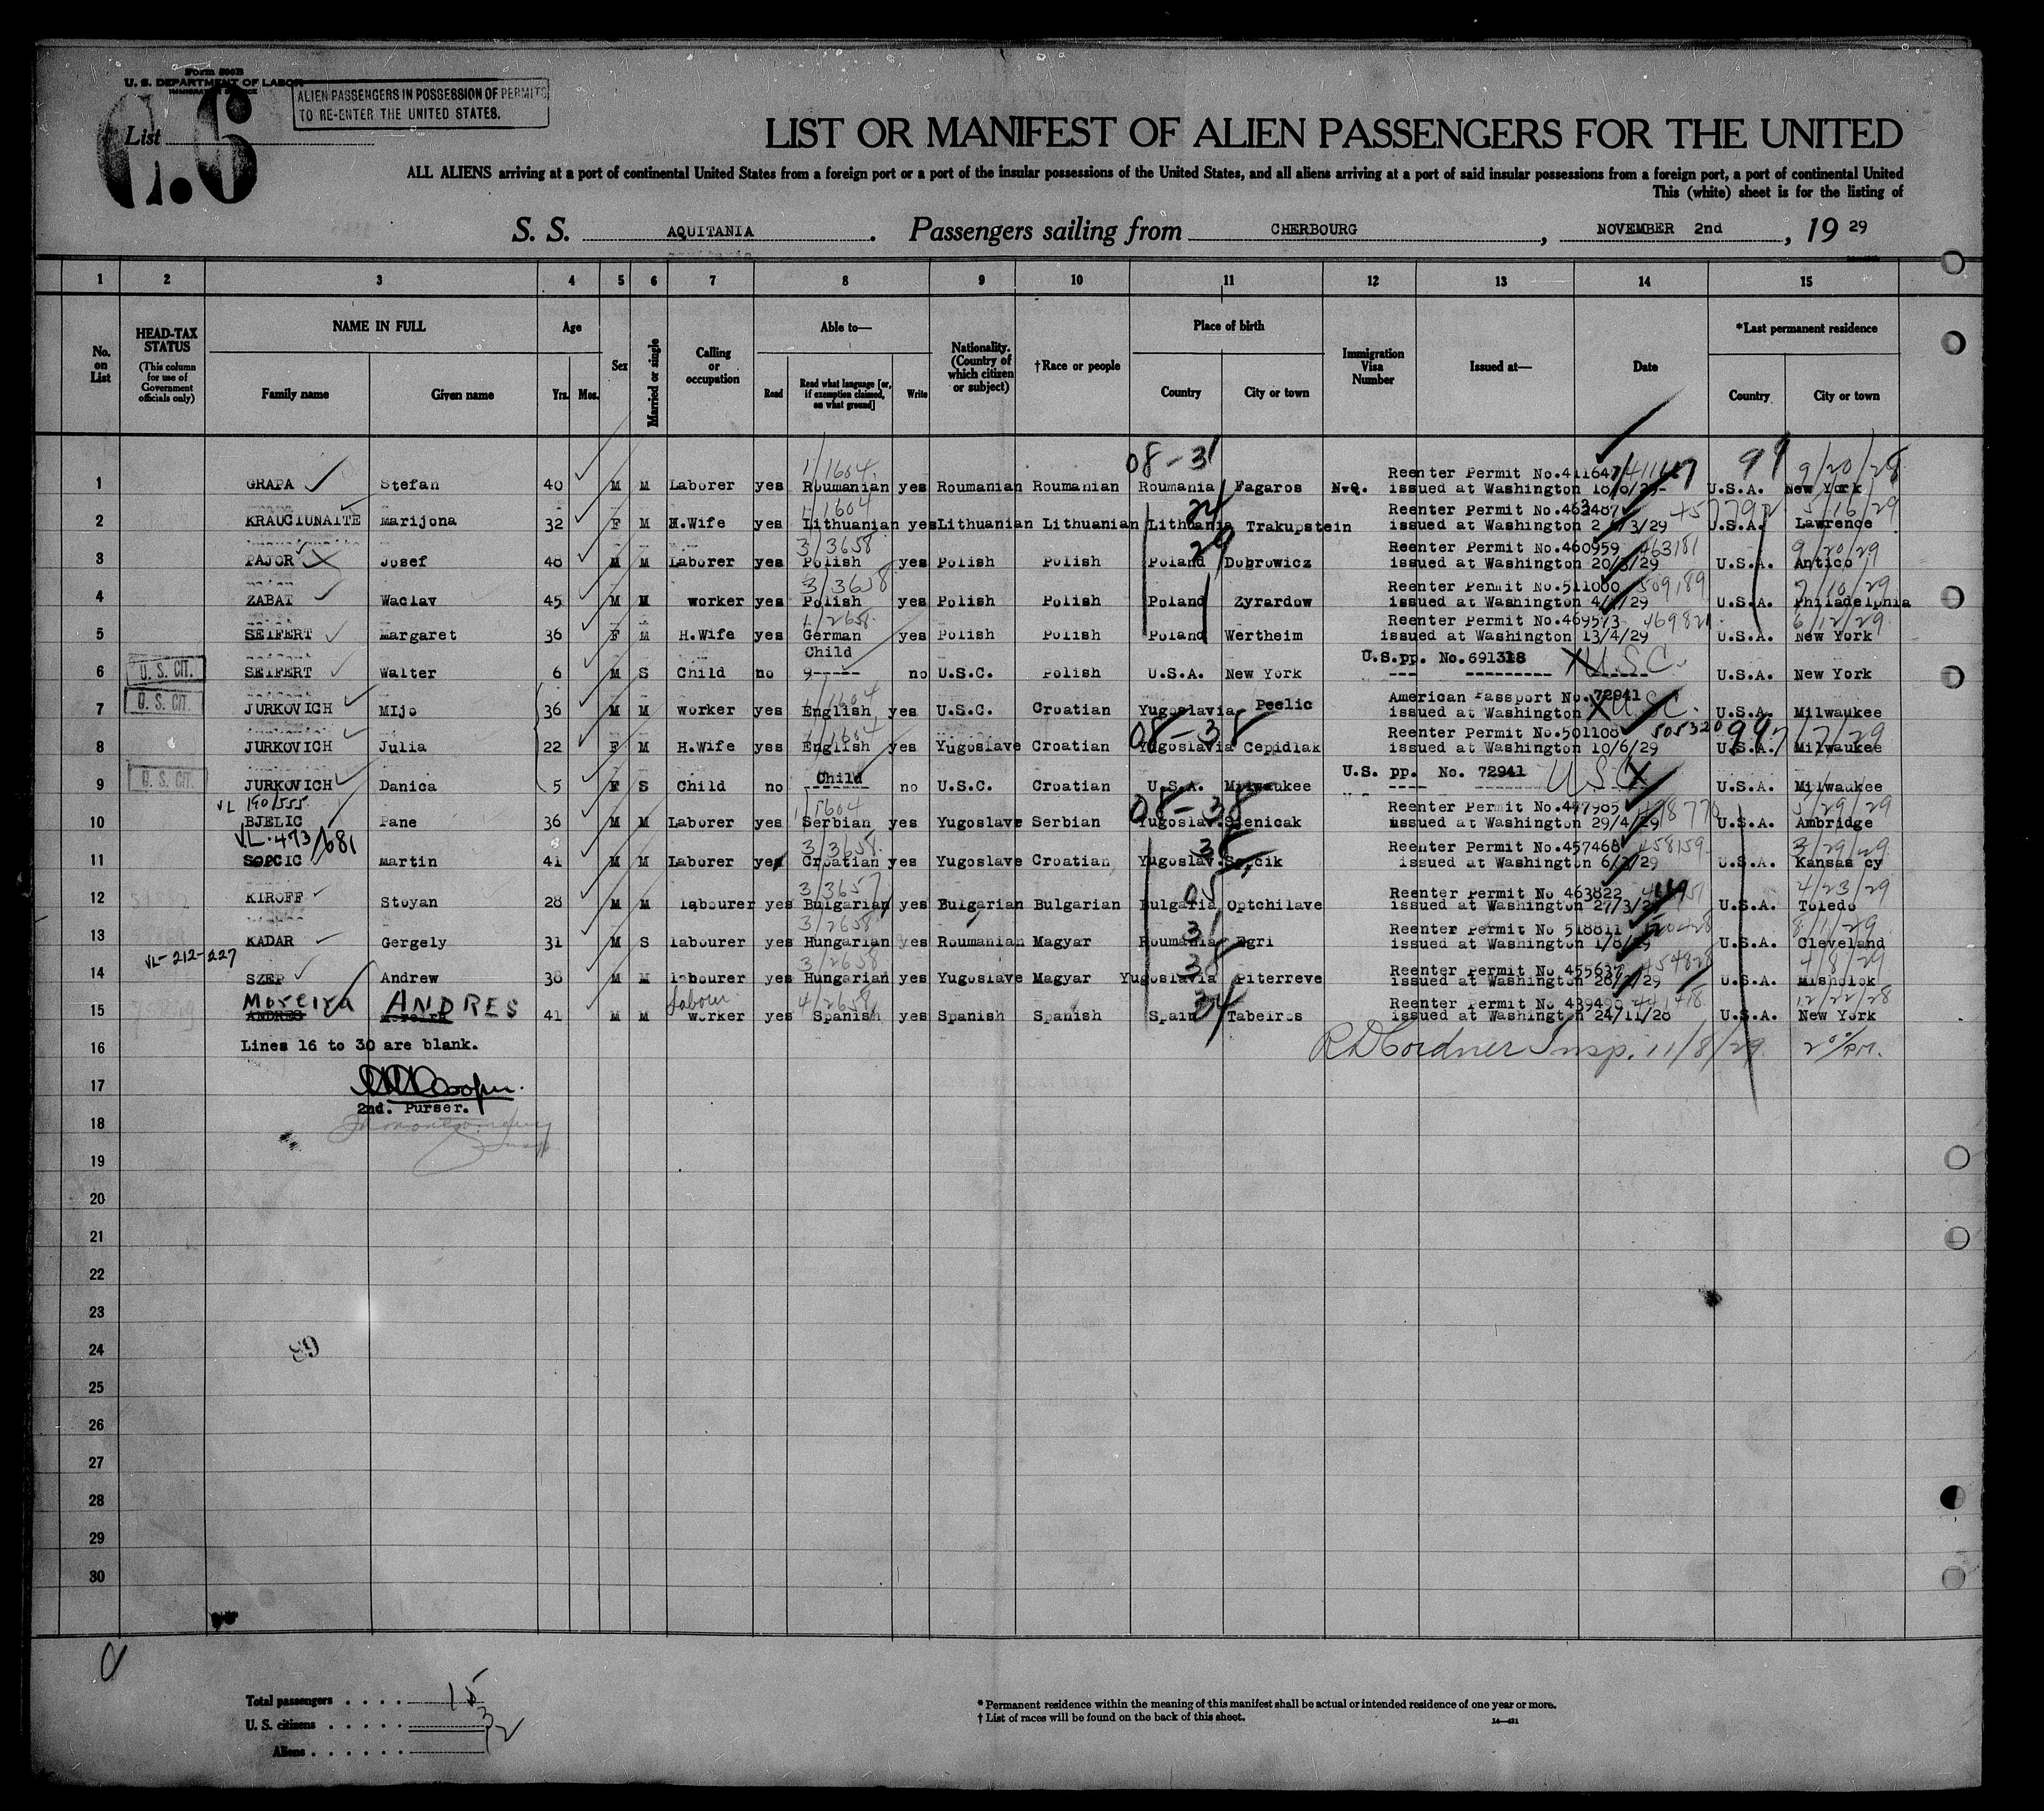 Form 500B
U. S. DEPARTMENT OF LABOR
ALIEN PASSENGERS IN POSSESSION OF PERMITS
TO RE-ENTER THE UNITED STATES.
List 6
LIST OR MANIFEST OF ALIEN PASSENGERS FOR THE UNITED
ALL ALIENS arriving at a port of continental United States from a foreign port or a port of the insular possessions of the United States, and all aliens arriving at a port of said insular possessions from a foreign port, a port of continental United
This (white) sheet is for the listing of
S. S. AQUITANIA. Passengers sailing from CHERBOURG, NOVEMBER 2nd, 19 29
1 2 3 4 5 6 7 8 9 10 11 12 13 14 15
No. on List
HEAD-TAX STATUS (This column for use of Government officials only)
NAME IN FULL Family name Given name
Age Yrs. Mos.
Sex
Married or single
Calling or occupation
Able to— Read Read what language [or, if exemption claimed, on what ground] Write
Nationality. (Country of which citizen or subject)
†Race or people
Place of birth Country City or town
Immigration Visa Number
Issued at—
Date
*Last permanent residence Country City or town
08-31 99 9/20/28
1/1604
1 GRAPA Stefan 40 M M Laborer yes Roumanian yes Roumanian Roumanian Roumania Fagaros N.Q. Reenter Permit No.411647 issued at Washington U.S.A. New York
1/1604 24 5/16/29
2 KRAUCIUNAITE Marijona 32 F M H.Wife yes Lithuanian yes Lithuanian Lithuanian Lithuania Trakupstein Reenter Permit issued at Washington /3/29 U.S.A. Lawrence
3/3658 29 463181 9/20/29
3 PAJOR Josef 48 M M Laborer yes Polish yes Polish Polish Poland Dobrowicz Reenter Permit No.460959 issued at Washington 20/3/29 U.S.A. Antico
3/3658 509189 7/10/29
4 ZABAT Waclav 45 M M worker yes Polish yes Polish Polish Poland Zyrardow Reenter Permit No.511000 issued at Washington U.S.A. Philadelphia
1/2658 6/12/29
5 SEIFERT Margaret 36 F M H.Wife yes German yes Polish Polish Poland Wertheim Reenter Permit No.469573 issued at Washington 13/4/29 U.S.A. New York
U. S. CIT. Child
6 SEIFERT Walter 6 M S Child no 9----- no U.S.C. Polish U.S.A. New York U.S.pp. No.691318 X U.S.C. U.S.A. New York
U. S. CIT. 1/1604
7 JURKOVICH MIjo 36 M M worker yes English yes U.S.C. Croatian Yugoslavia Peelic American Passport No.72941 issued at Washington X U.S.C. U.S.A. Milwaukee
1/1604 08-38 505320 99 7/7/29
8 JURKOVICH Julia 22 F M H.Wife yes English yes Yugoslave Croatian Yugoslavia Cepidlak Reenter Permit No.501108 issued at Washington 10/6/29 U.S.A. Milwaukee
U. S. CIT.
9 JURKOVICH Danica 5 F S Child no Child no U.S.C. Croatian U.S.A. Milwaukee U.S. pp. No. 72941 U.S.C. X U.S.A. Milwaukee
VL 190/555 08-38 5/29/29
10 BJELIC Pane 36 M M Laborer yes Serbian yes Yugoslave Serbian Yugoslav. Sjenicak Reenter Permit No.477905 issued at Washington 29/4/29 U.S.A. Ambridge
VL.473/681 3/3658 38 458159 3/29/29
11 SOPCIC Martin 41 M M Laborer yes Croatian yes Yugoslave Croatian Yugoslav. Reenter Permit No.457468 issued at Washington 6/3/29 U.S.A. Kansas cy
3/3657 05 4/23/29
12 KIROFF Stoyan 28 M M labourer yes Bulgarian yes Bulgarian Bulgarian Bulgaria Optchilave Reenter Permit No 463822 issued at Washington 27/3/29 U.S.A. Toledo
3/2658 31 8/1/29
13 KADAR Gergely 31 M S labourer yes Hungarian yes Roumanian Magyar Roumania Egri Reenter Permit No 518811 issued at Washington 1/8/29 U.S.A. Cleveland
VL-212-227 3/2658 38 454828 4/8/29
14 SZEP Andrew 38 M M labourer yes Hungarian yes Yugoslave Magyar Yugoslavia Piterreve Reenter Permit No.455637 issued at Washington U.S.A. Misholok
Moreira ANDRES labour 4/2658 34 441418 12/22/28
15 ANDRES Moreira 41 M M worker yes Spanish yes Spanish Spanish Spain Tabeiros Reenter Permit No 439490 issued at Washington 24/11/28 U.S.A. New York
16 Lines 16 to 30 are blank. R D Cordner Insp. 11/8/29
17
2nd. Purser.
18
19
20
21
22
23
24
89
25
26
27
28
29
30
Total passengers . . . . 15
U. S. citizens . . . . . 3
Aliens . . . . . . 12
* Permanent residence within the meaning of this manifest shall be actual or intended residence of one year or more.
† List of races will be found on the back of this sheet.